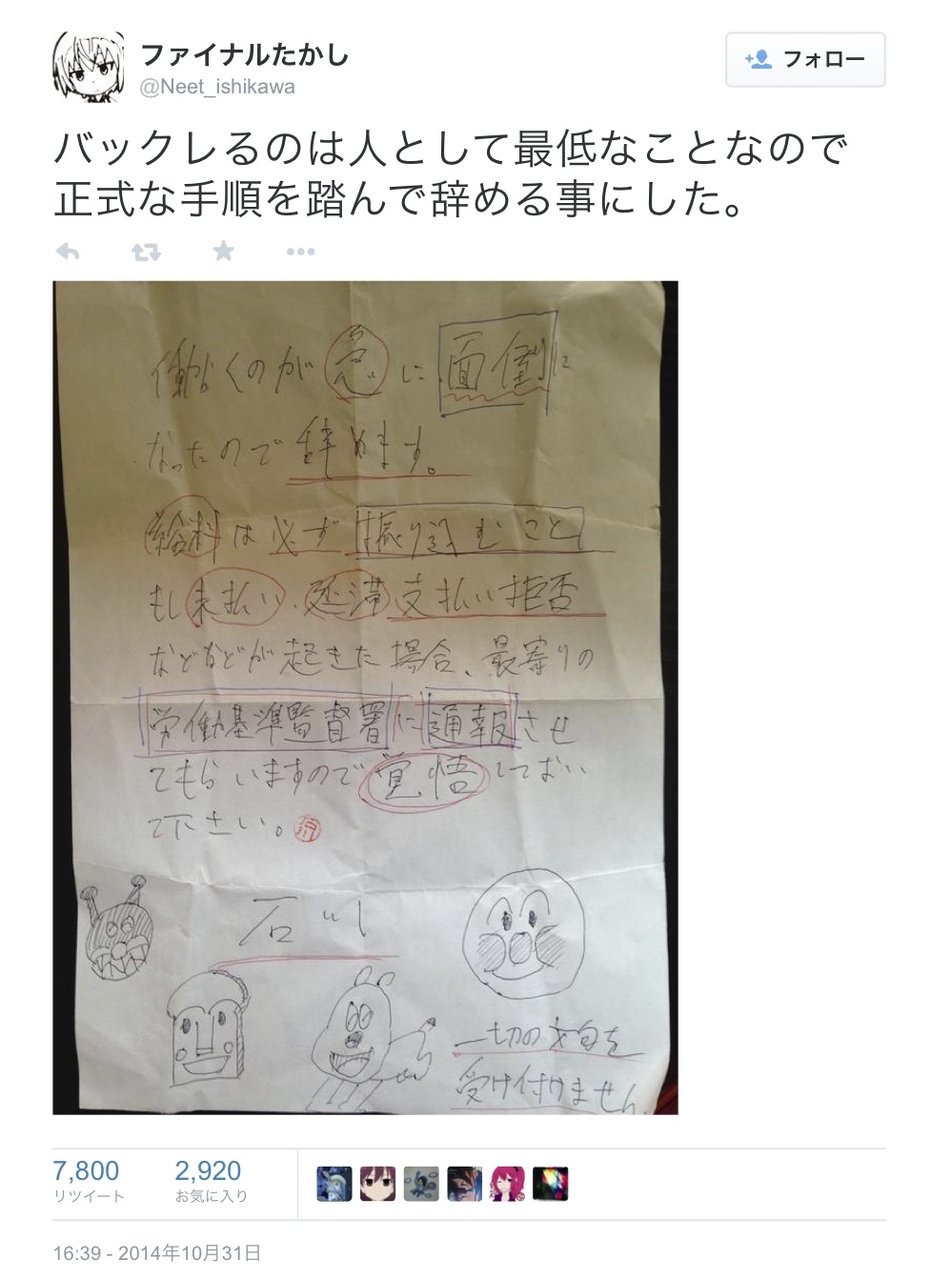 ファイナルたかし
@Neet_ishikawa
フォロー
バックレるのは人として最低なことなので
正式な手順を踏んで辞める事にした。
働くのが急に面倒に
なったので辞めます。
給料は必ず振り込むこと
もし未払い、延滞、支払い拒否
などなどが起きた場合、最寄りの
労働基準監督署に通報させ
てもらいますので覚悟しておい
て下さい。
石川
一切の文句を
受け付けません
7,800
2,920
リツイート
お気に入り
16:39 - 2014年10月31日